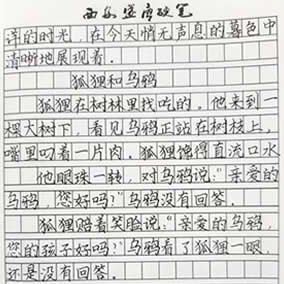 西安逆唐硬笔
洋的时光，在今天悄无声息的暮色中
清晰地展现着。
狐狸和乌鸦
狐狸在树林里找吃的。他来到一
棵大树下，看见乌鸦正站在树枝上，
嘴里叼着一片肉。狐狸馋得直流口水
他眼珠一转，对乌鸦说：“亲爱的
乌鸦，您好吗？”乌鸦没有回答。
狐狸赔着笑脸说：“亲爱的乌鸦，
您的孩子好吗？”乌鸦看了狐狸一眼，
还是没有回答。